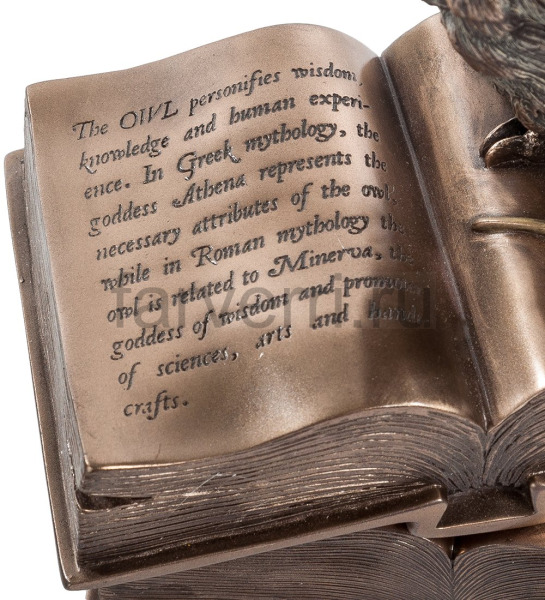 The OWL personifies wisdom,
knowledge and human experi-
ence. In Greek mythology, the
goddess Athena represents the
necessary attributes of the owl,
while in Roman mythology the
owl is related to Minerva, the
goddess of wisdom and
of sciences, arts and hand
crafts.